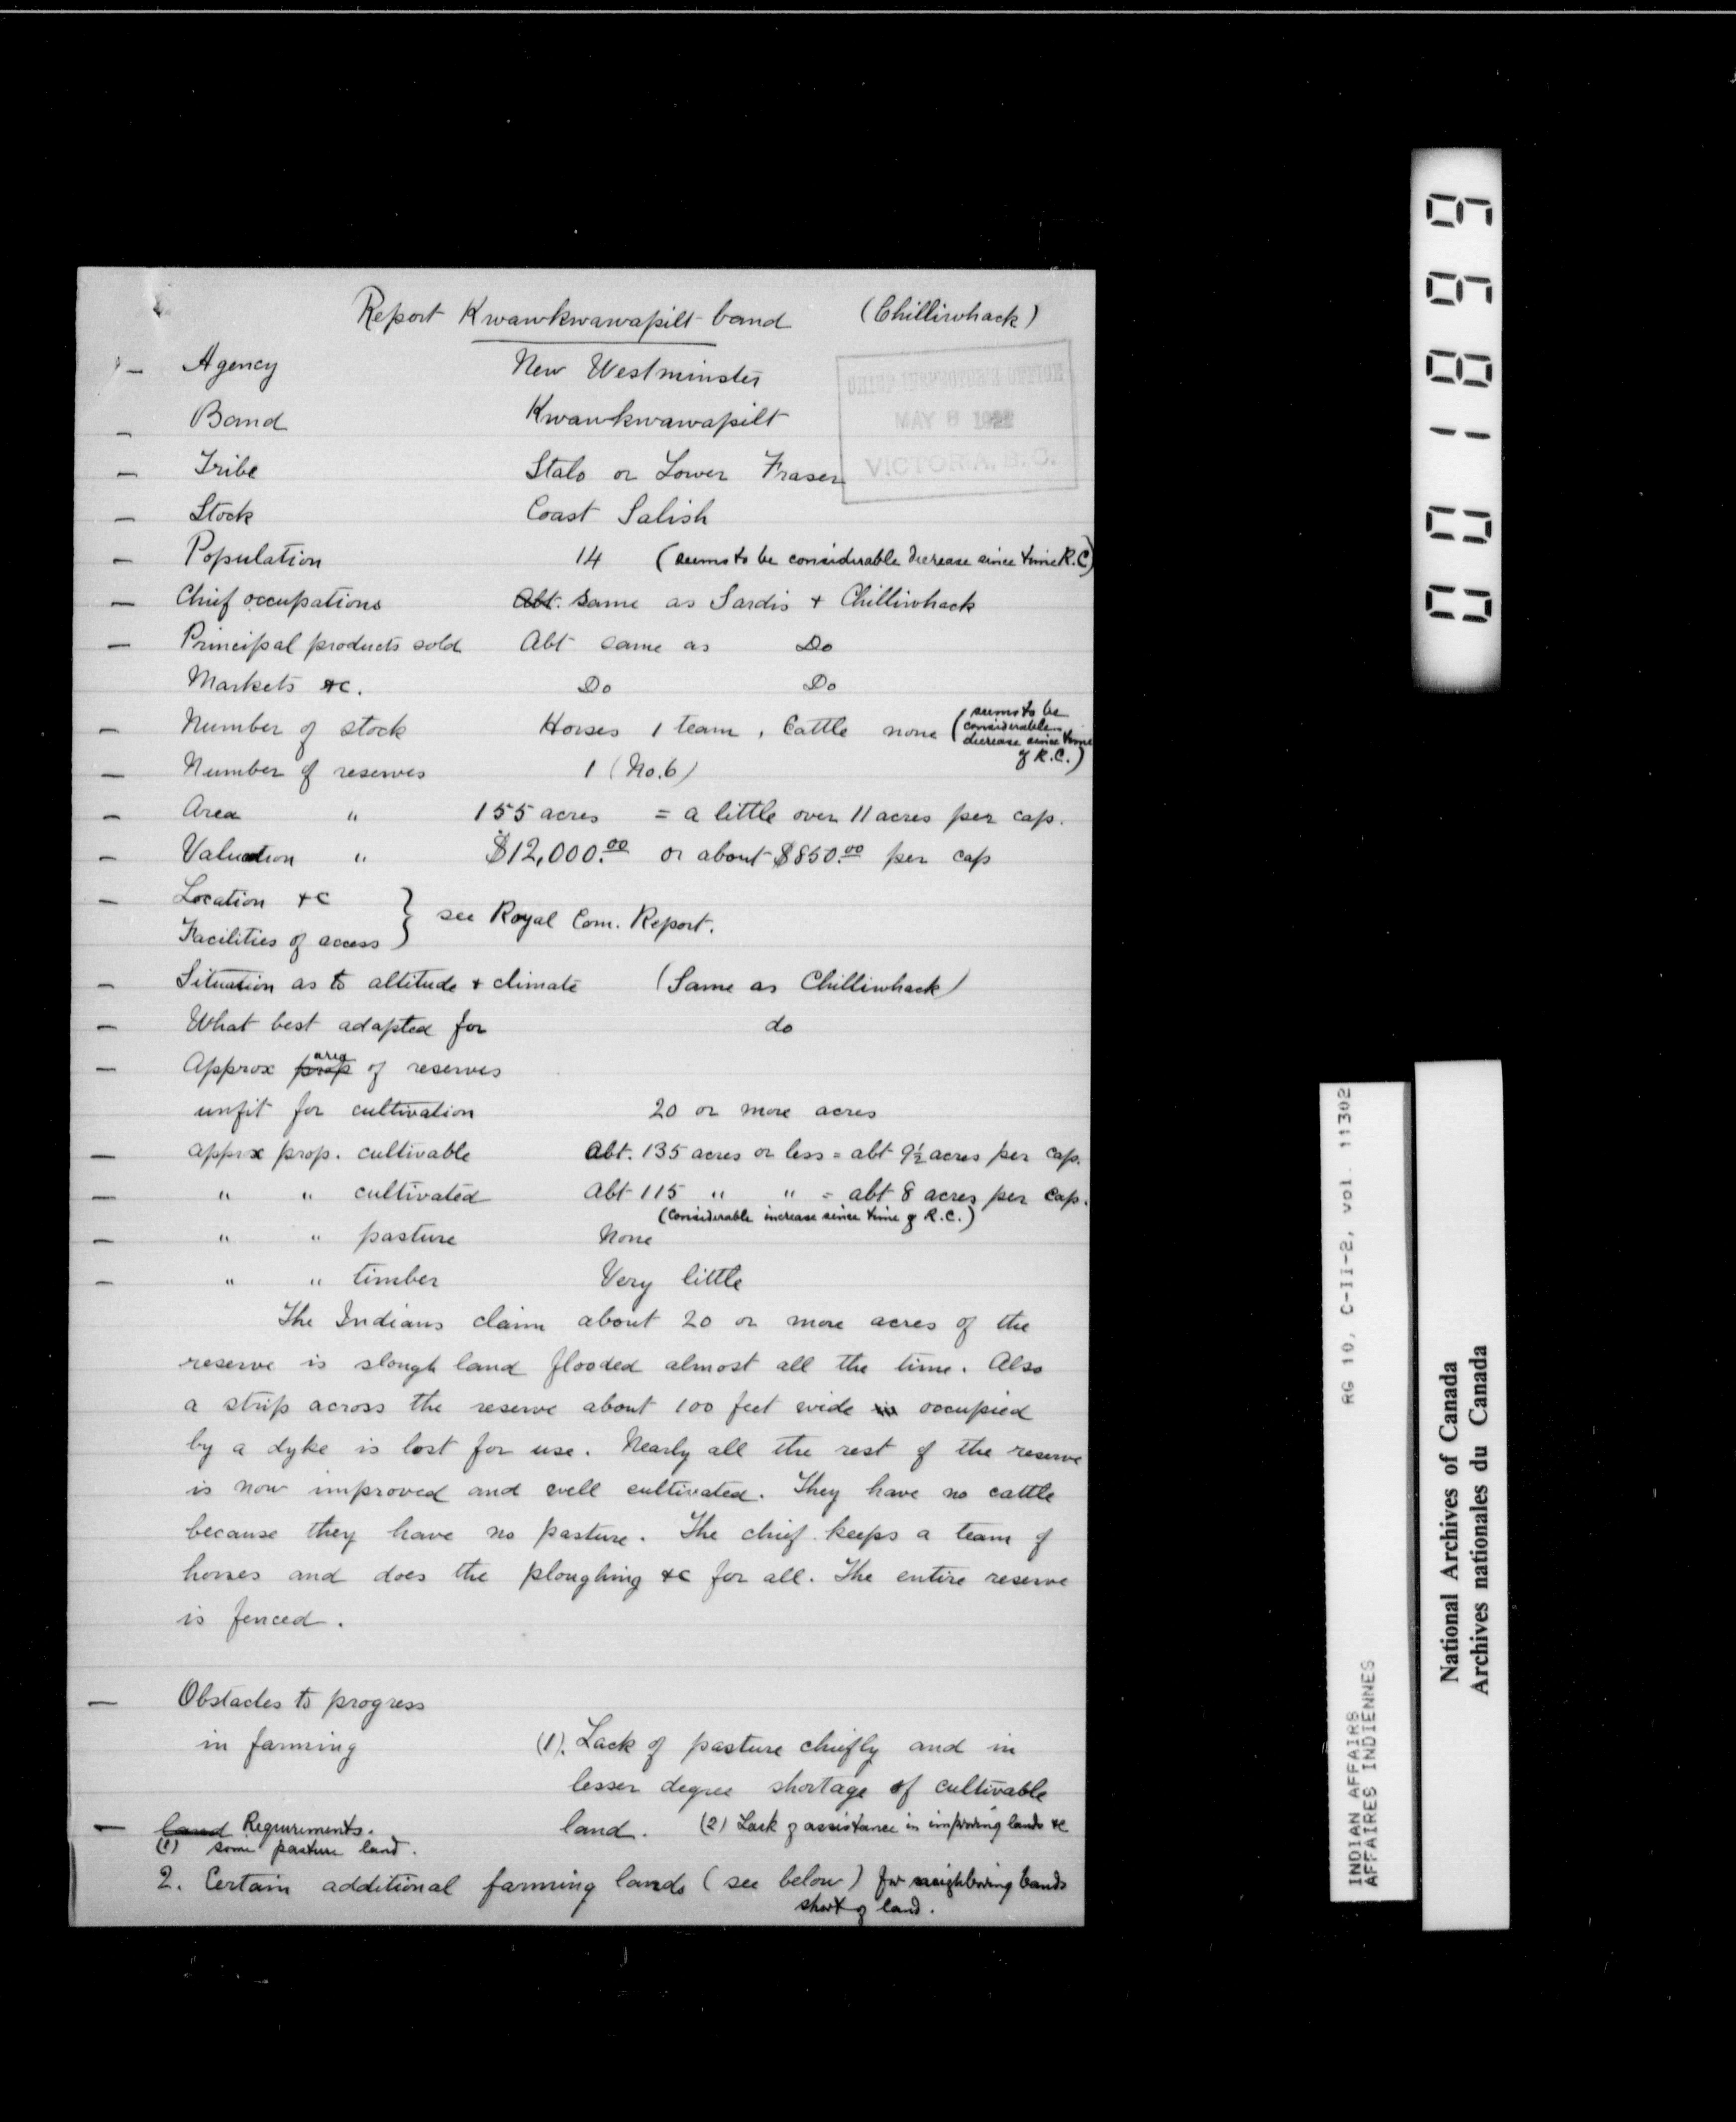 Report Kwawkwawapilt band (Chilliwhack)
CHIEF INSPECTOR'S OFFICE
MAY 8 1922
VICTORIA, B.C.
— Agency New Westminster
— Band Kwawkwawapilt
— Tribe Stalo or Lower Fraser
— Stock Coast Salish
— Population 14 (seems to be considerable decrease since time R.C)
— Chief occupations Abt. Same as Sardis + Chilliwhack
— Principal products sold Abt same as Do
Markets &c. Do Do
— Number of stock Horses 1 team, Cattle none (seems to be
considerable
decrease since time
of R.C.)
— Number of reserves 1 (No. 6)
— Area " 155 acres = a little over 11 acres per cap.
— Valuation " $12,000.00 or about $850.00 per cap
— Location +c
Facilities of access } see Royal Com. Report.
— Situation as to altitude + climate (Same as Chilliwhack)
— What best adapted for do
— Approx prop area of reserves
unfit for cultivation 20 or more acres
— approx prop. cultivable Abt. 135 acres or less = abt 9½ acres per cap.
— " " cultivated Abt 115 " " = abt 8 acres per cap.
(Considerable increase since time of R.C.)
— " " pasture None
— " " timber Very little
The Indians claim about 20 or more acres of the
reserve is slough land flooded almost all the time. Also
a strip across the reserve about 100 feet wide is occupied
by a dyke is lost for use. Nearly all the rest of the reserve
is now improved and well cultivated. They have no cattle
because they have no pasture. The chief keeps a team of
horses and does the ploughing &c for all. The entire reserve
is fenced.
— Obstacles to progress
in farming (1). Lack of pasture chiefly and in
lesser degree shortage of cultivable
land. (2) Lack of assistance in improving lands &c
— land Requirements.
(1) some pasture land.
2. Certain additional farming lands (see below) for neighboring bands
short of land.
001899
INDIAN AFFAIRS RG 10, C-II-2, vol. 11302
AFFAIRES INDIENNES
National Archives of Canada
Archives nationales du Canada